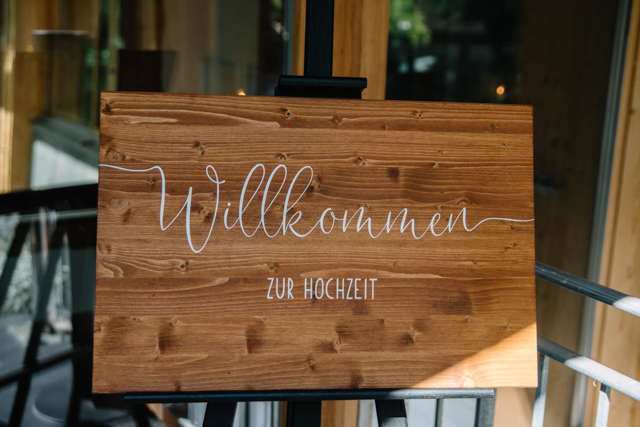 Willkommen
ZUR HOCHZEIT